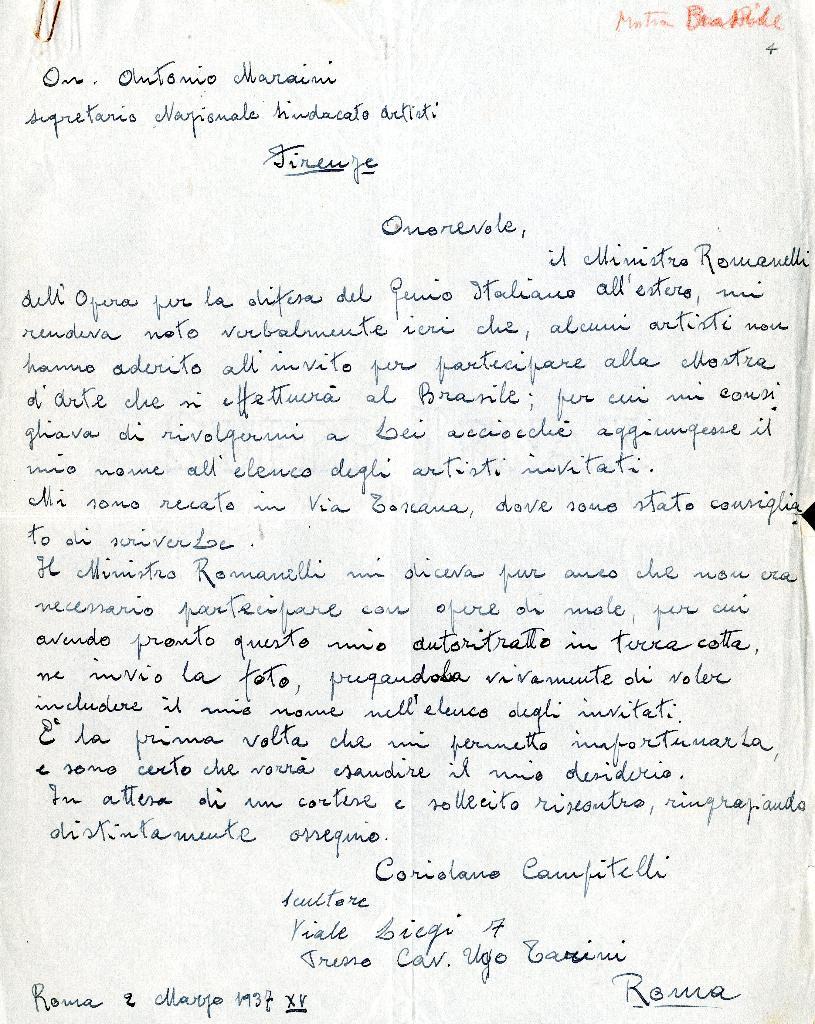 Mostra Brasile
4
On. Antonio Maraini
segretario Nazionale Sindacato Artisti
Firenze
Onorevole,
il Ministro Romanelli
dell'Opera per la difesa del Genio Italiano all'estero, mi
rendeva noto verbalmente ieri che, alcuni artisti non
hanno aderito all'invito per partecipare alla Mostra
d'Arte che si effettuerà al Brasile; per cui mi consi
gliava di rivolgermi a Lei acciocchè aggiungesse il
mio nome all'elenco degli artisti invitati.
Mi sono recato in Via Toscana, dove sono stato consiglia
to di scriverLe.
Il Ministro Romanelli mi diceva pur anco che non era
necessario partecipare con opere di mole, per cui
avendo pronto questo mio autoritratto in terra cotta,
ne invio la foto, pregandola vivamente di voler
includere il mio nome nell'elenco degli invitati.
E' la prima volta che mi permetto importunarLa,
e sono certo che vorrà esaudire il mio desiderio.
In attesa di un cortese e sollecito riscontro, ringraziando
distintamente ossequio.
Coriolano Campitelli
scultore
Viale Liegi 7
Presso Cav. Ugo Tarini
Roma
Roma 2 Marzo 1937 XV